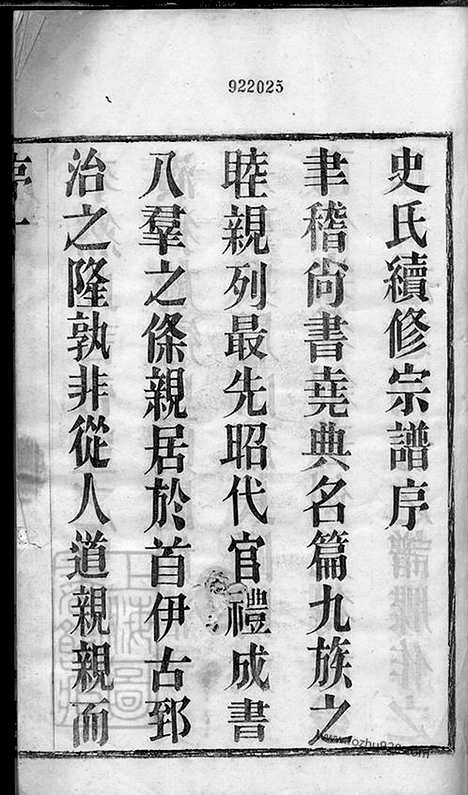 922025
史氏續修宗譜序
聿稽尙書堯典名篇九族之
睦親列最先昭代官禮成書
八羣之條親居於首伊古郅
治之隆孰非從人道親親而
序一